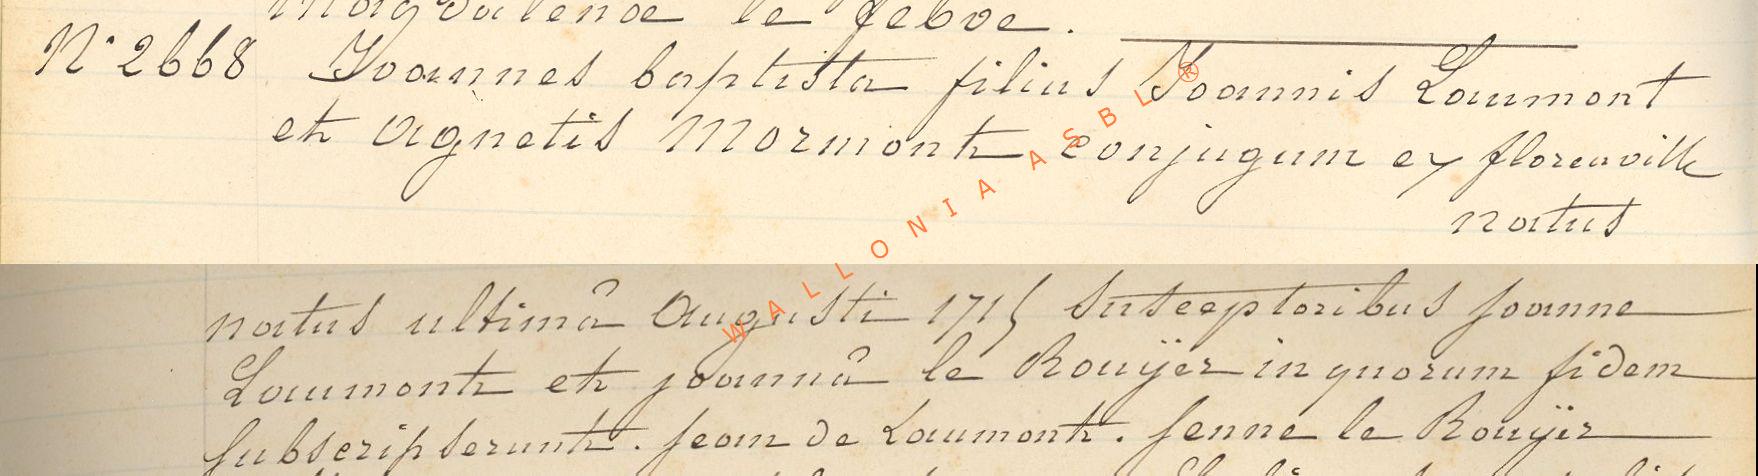 Magdalena le febve.
N° 2668 Joannes baptista filius Joannis Laumont
et Agnetis Mormont conjugum ex florenville
natus
natus ultimâ Augusti 1715 Susceptoribus Joanne
Laumont et joannâ le Rouÿer in quorum fidem
Subscripserunt. Jean de Laumont. Jenne le Rouÿer
WALLONIA ASBL ®